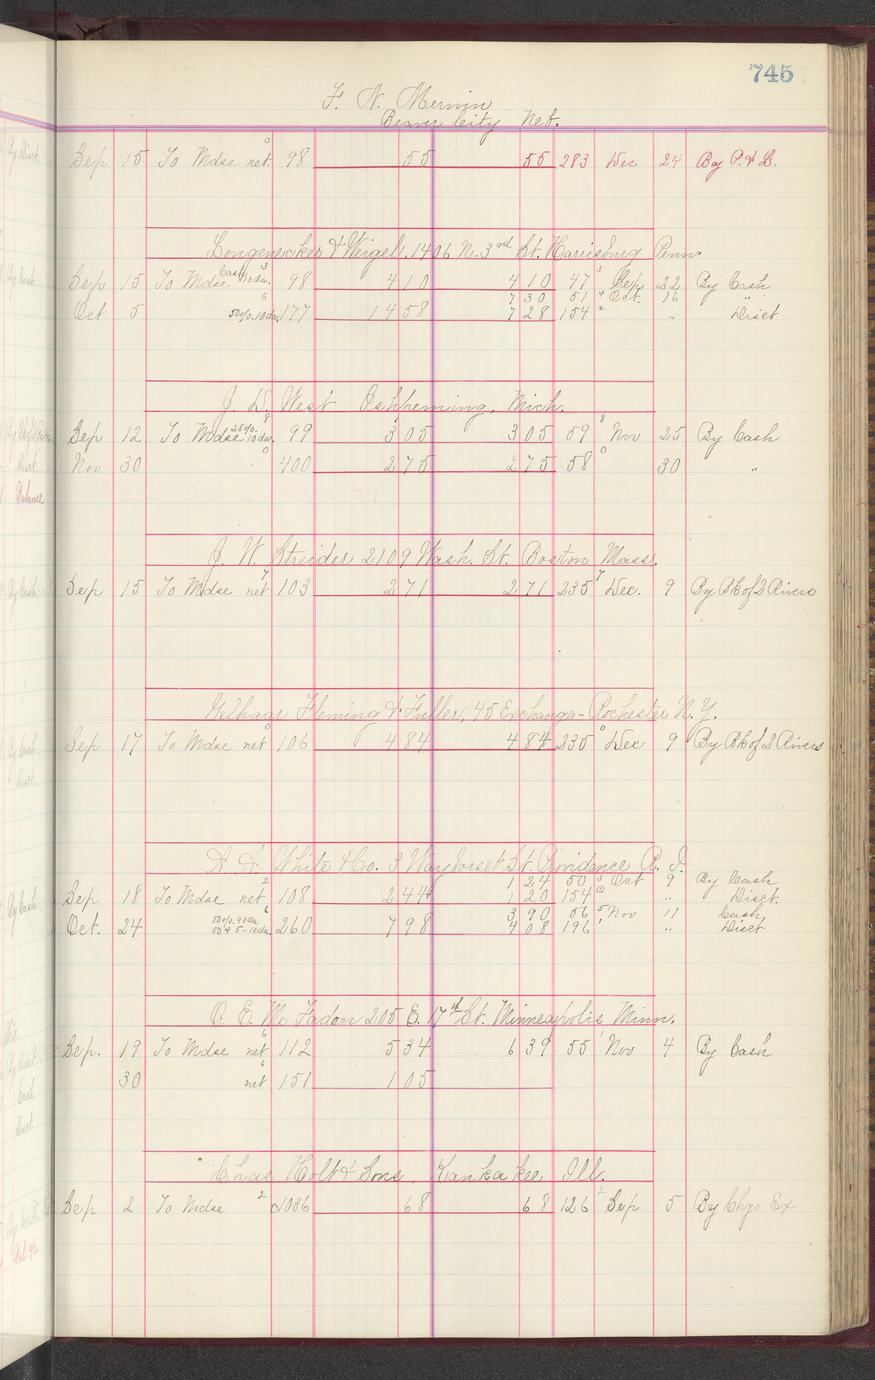 745
F. N. Mervin
Beaver City Neb.
Sep 15 To Mdse net 98 55 55 283 Dec 24 By P. & L.
Longenecker & Weigel, 1406 N. 3rd St. Harrisburg Penn.
Sep 15 To Mdse Cash 10 da. 98 410 410 47 Sep 22 By Cash
730 51 Oct. 16 "
Oct 5 50% 10 da. 177 1458 728 154 " Disct
J. D. West Oshpeming, Mich.
Sep 12 To Mdse 10 da. 99 305 305 59 Nov 25 By Cash
Nov 30 400 275 275 58 30 "
J. W. Streider 2109 Wash. St. Boston Mass.
Sep 15 To Mdse net 103 271 271 235 Dec. 9 By Bk of 2 Rivers
Gelhaar Fleming & Fuller, 45 Exchange - Rochester N.Y.
Sep 17 To Mdse net 106 484 484 235 Dec 9 By Bk of 2 Rivers
White & Co. 3 Wayborset St. Providence R. I.
124 50 Oct 9 By Cash
Sep 18 To Mdse net 108 244 120 154 " Disct.
390 56 Nov 11 Cash
Oct. 24 260 798 408 196 " Disct
O. E. McFadon 205 E. 17th St. Minneapolis, Minn.
Sep. 19 To Mdse net 112 534 639 55 Nov 4 By Cash
30 net 151 105
Chas Holt & Sons. Kankakee Ill.
Sep 2 To Mdse 1036 68 68 126 Sep 5 By Chgo Ex